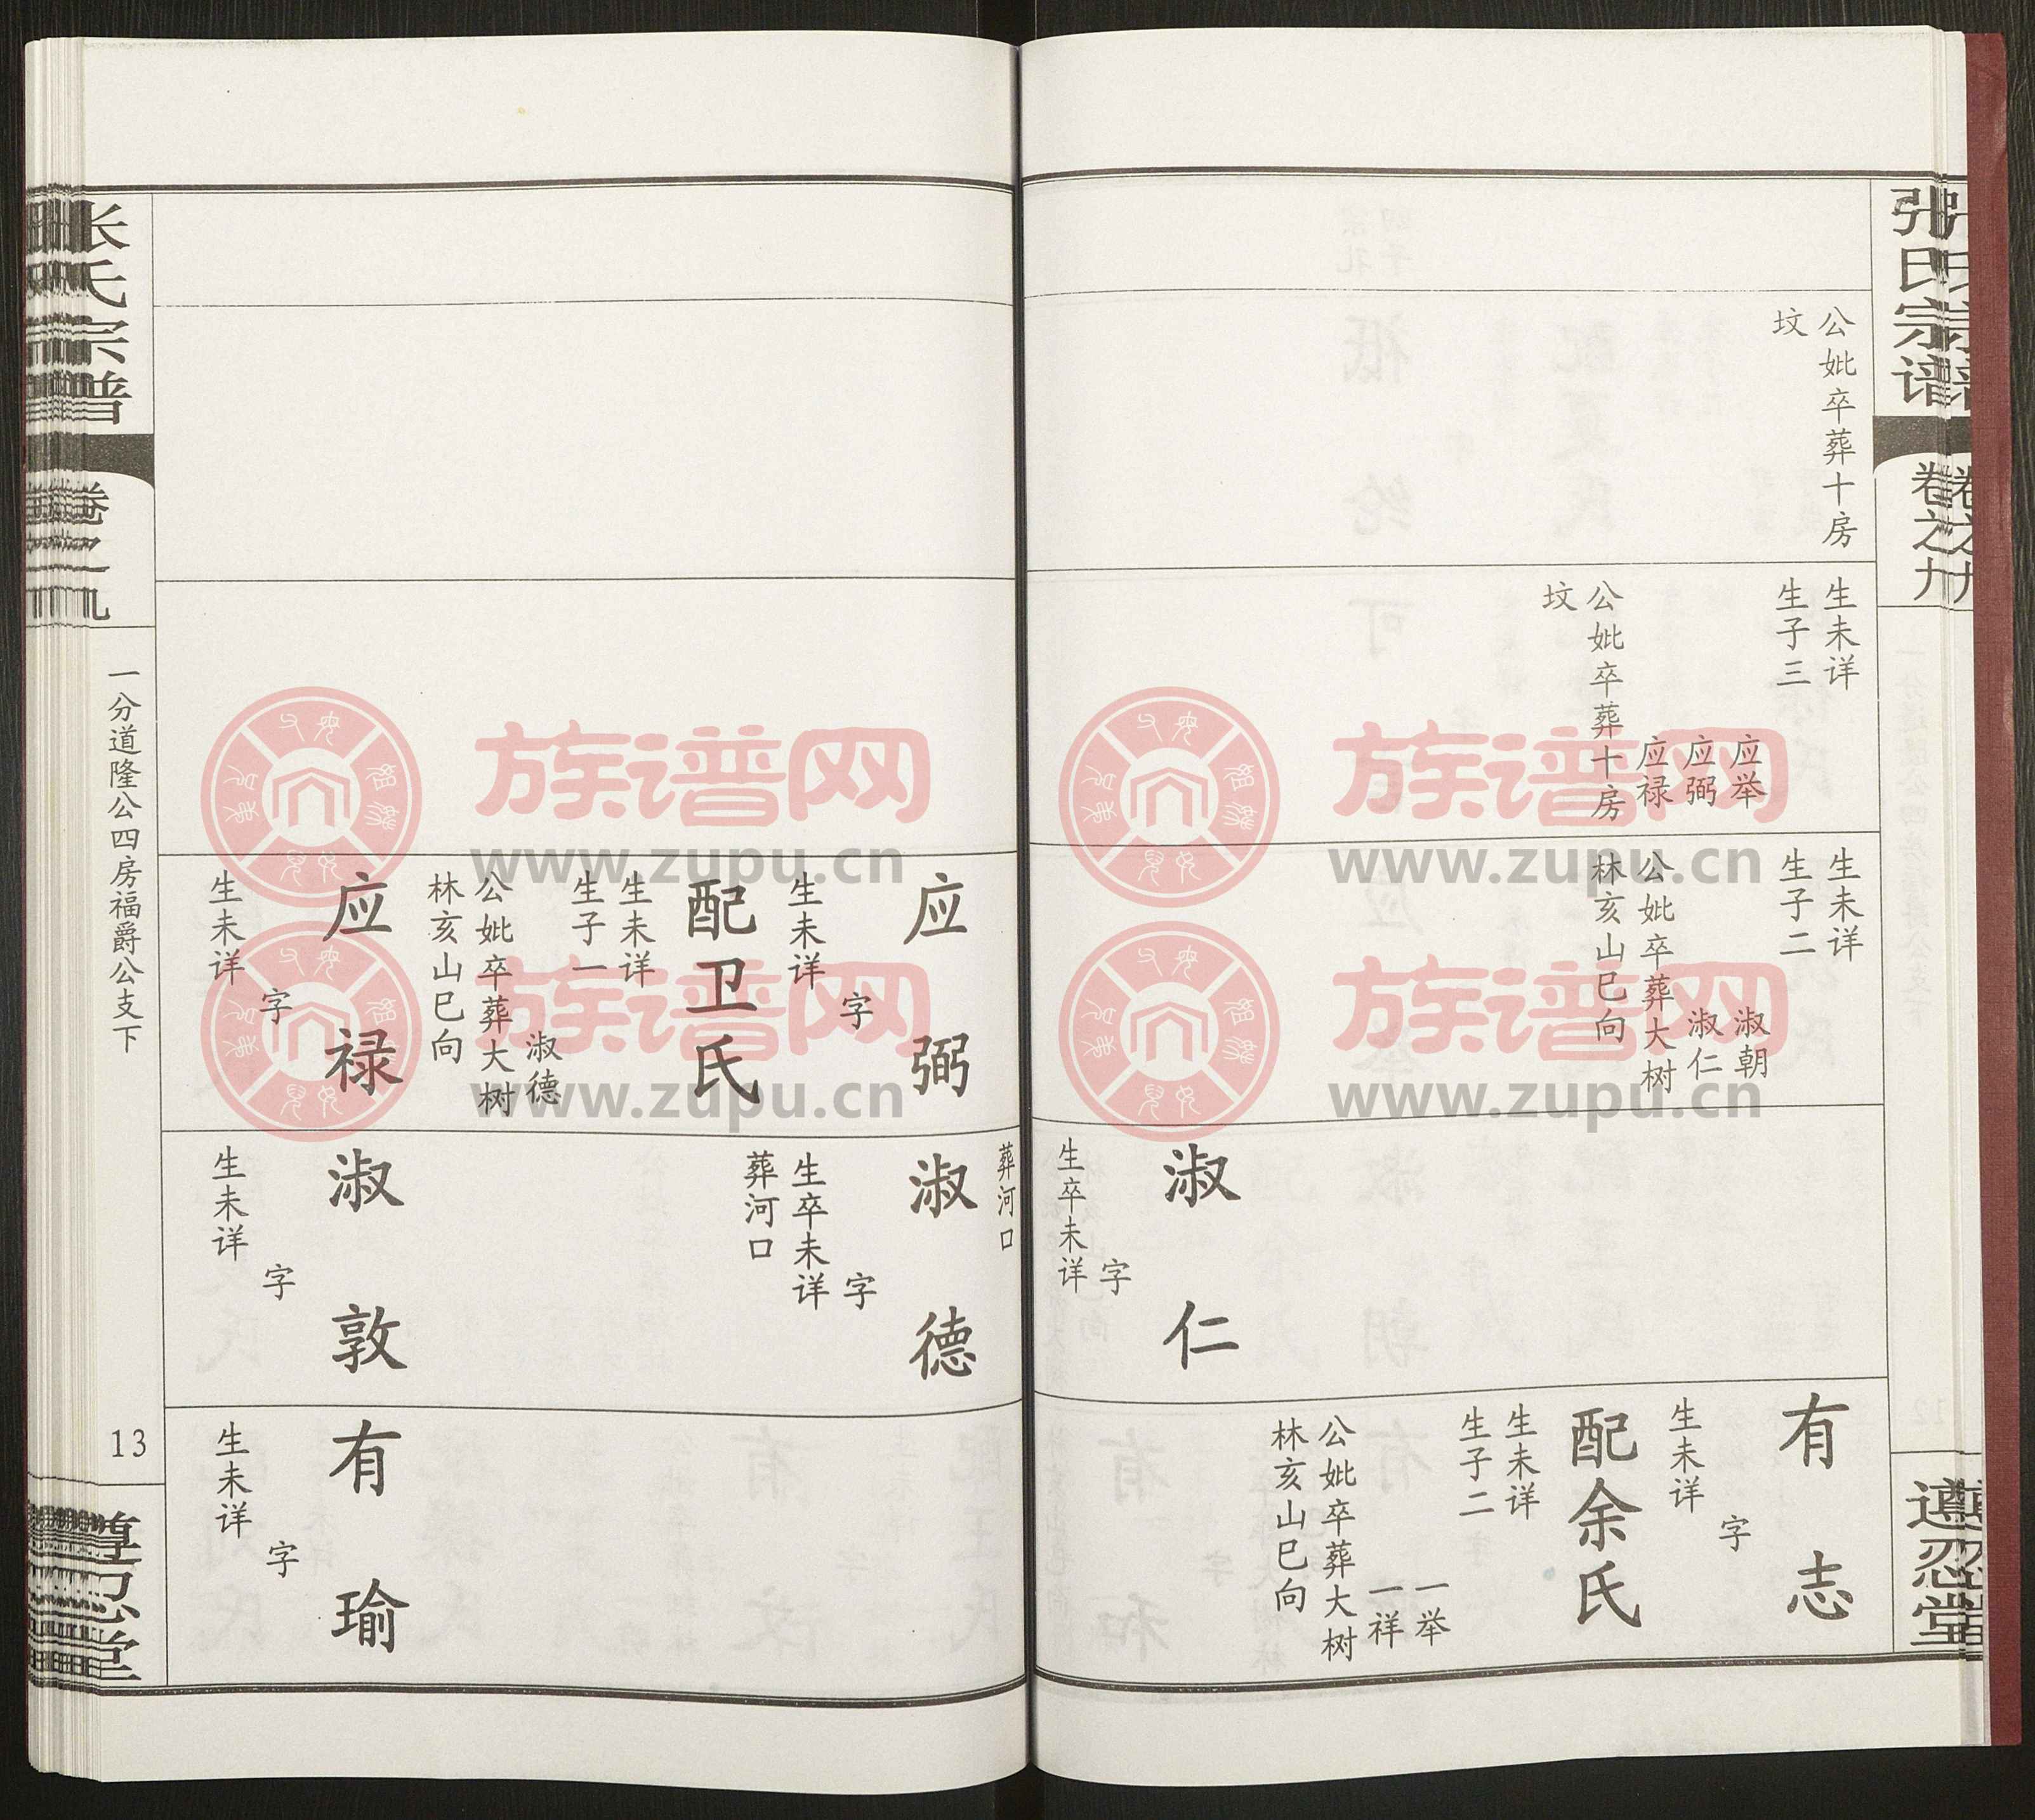 张氏宗谱
卷之九
遵忍堂
公妣卒葬十房
坟
生未详
生子三
应举
应弼
应禄
公妣卒葬十房
坟
生未详
生子二
淑朝
淑仁
公妣卒葬大树
林亥山巳向
淑仁
字
生卒未详
有志
字
生未详
配余氏
生未详
生子二
一举
一祥
公妣卒葬大树
林亥山巳向
应弼
字
生未详
配卫氏
生未详
生子一
淑德
公妣卒葬大树
林亥山巳向
应禄
字
生未详
葬河口
淑德
字
生卒未详
葬河口
淑敦
字
生未详
有瑜
字
生未详
张氏宗谱
卷之九
一分道隆公四房福爵公支下
13
遵忍堂
族谱网
www.zupu.cn
族谱网
www.zupu.cn
族谱网
www.zupu.cn
族谱网
www.zupu.cn